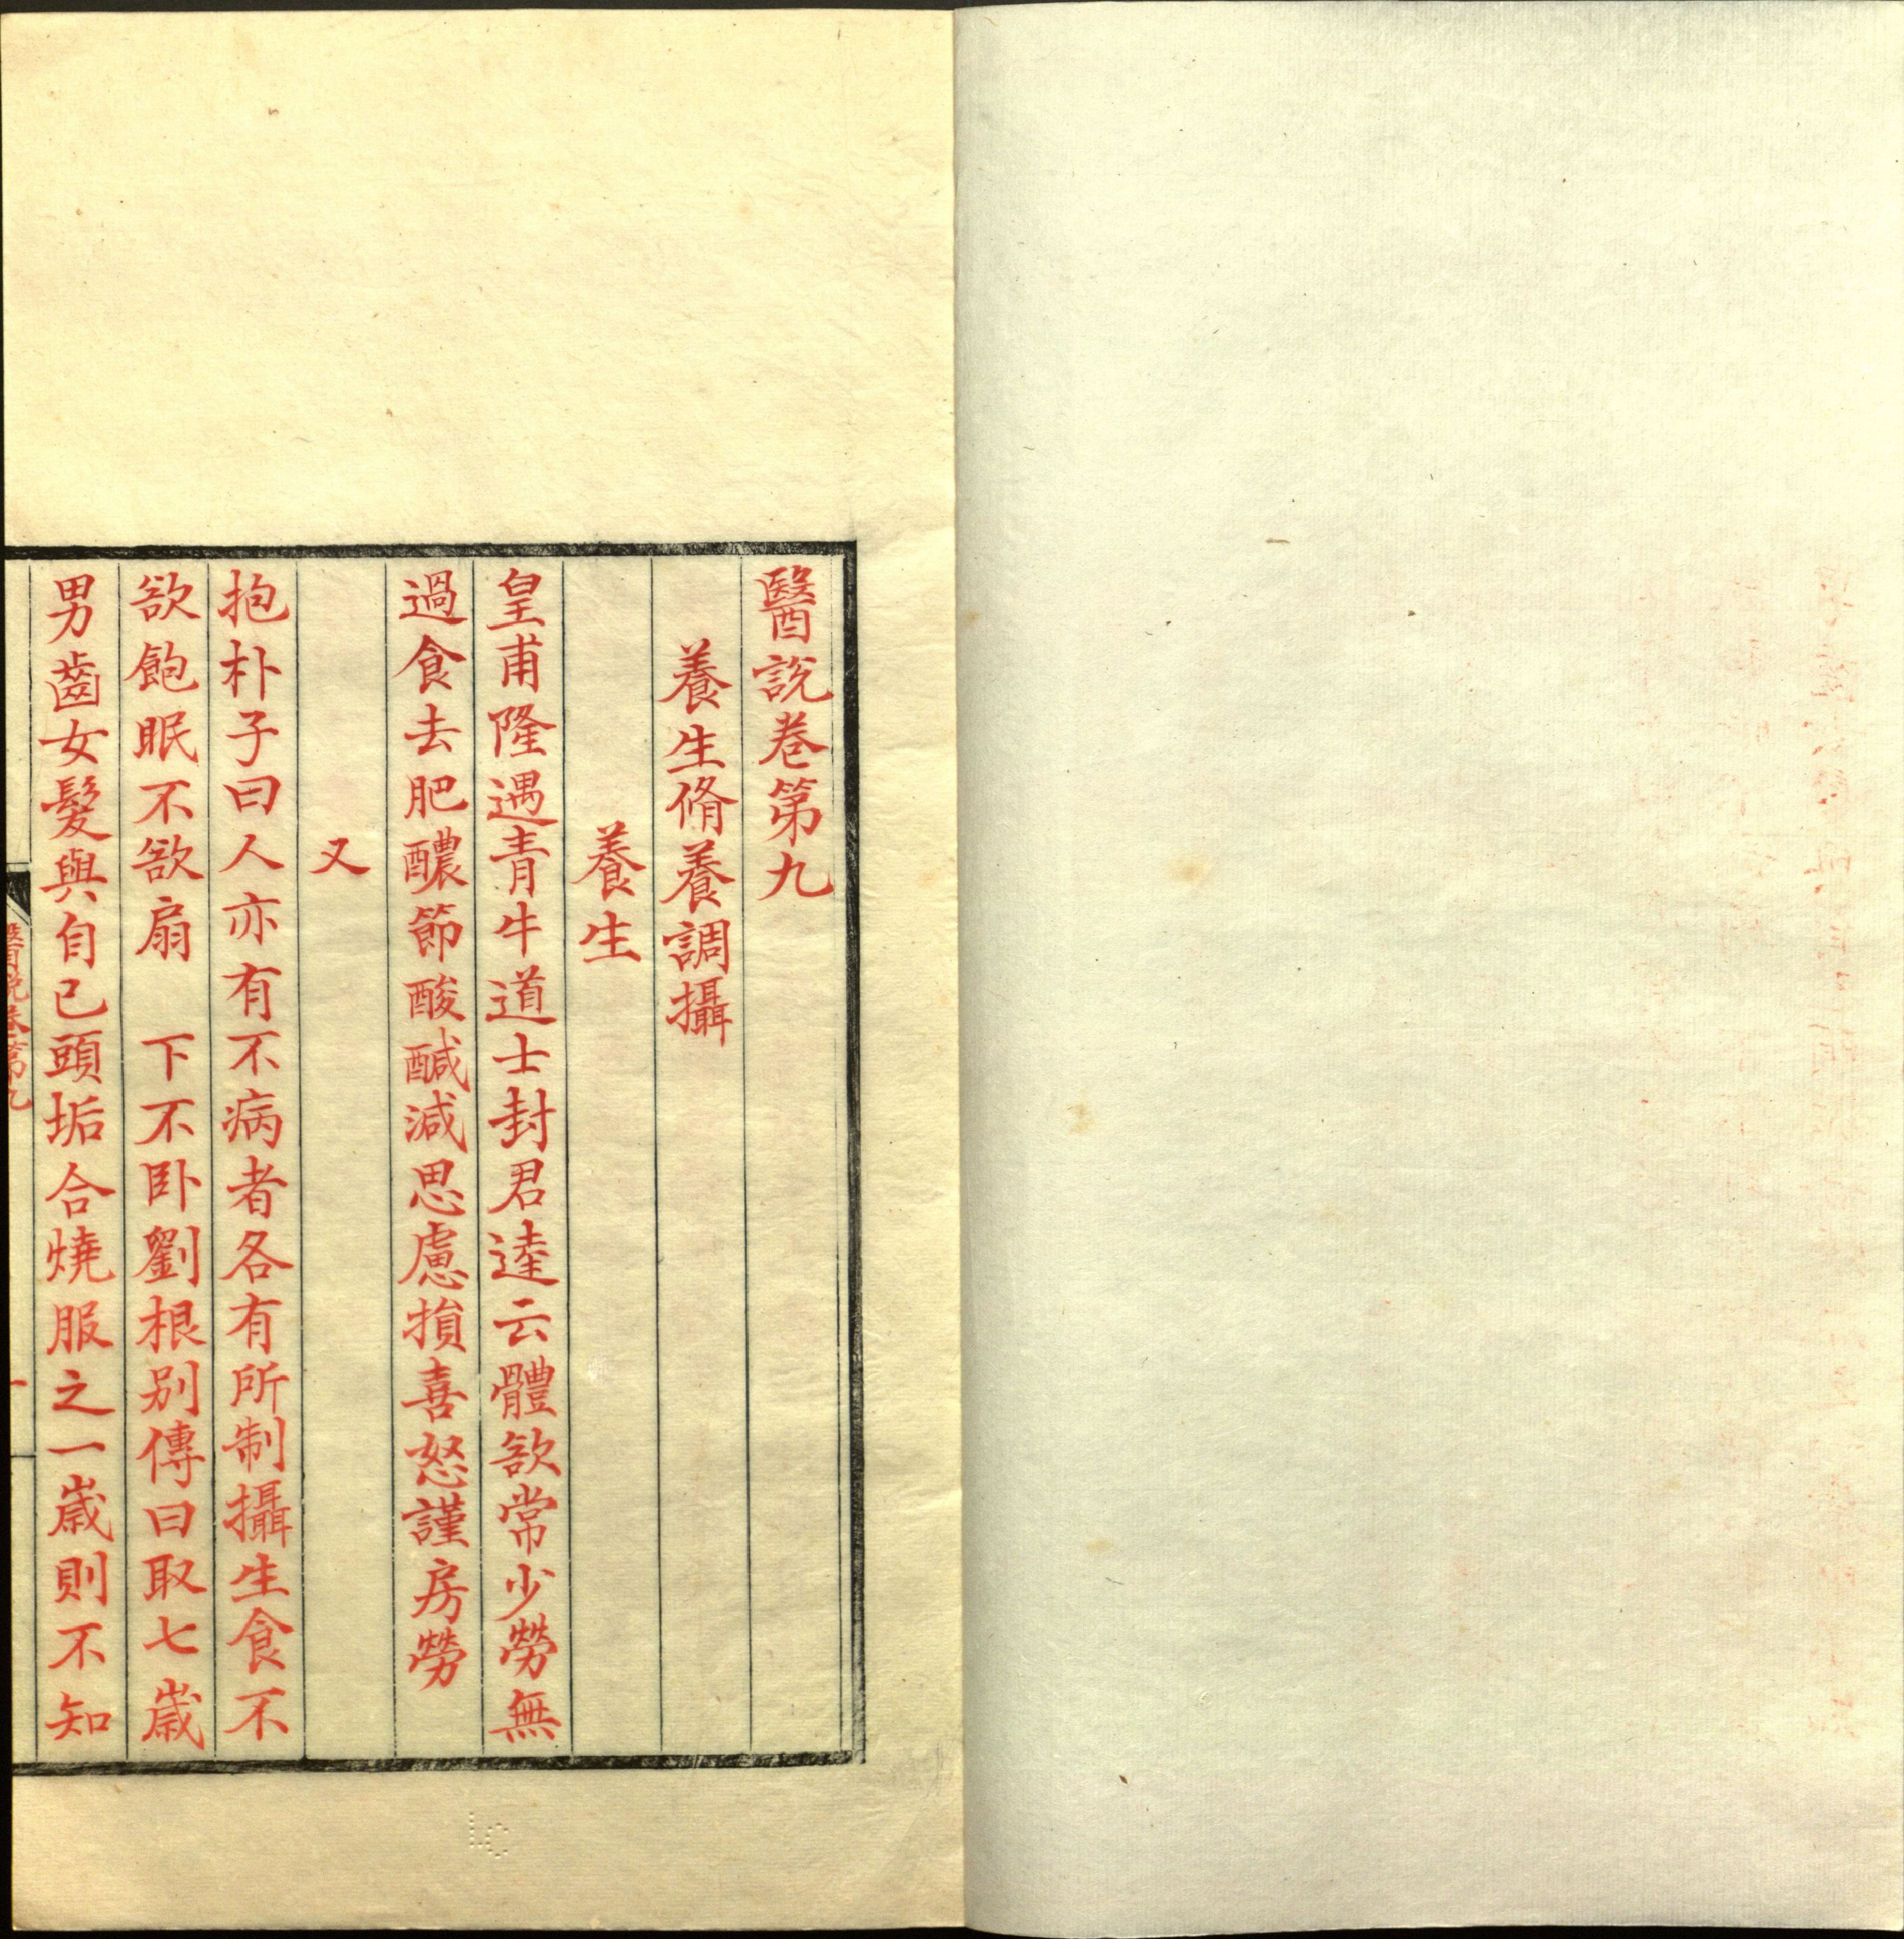 醫說卷第九
養生脩養調攝
養生
皇甫隆遇青牛道士封君逹云體欲常少勞無
過食去肥醲節酸醎減思慮損喜怒謹房勞
又
抱朴子曰人亦有不病者各有所制攝生食不
欲飽眠不欲扇　下不卧劉根别傳曰取七歲
男齒女髮與自己頭垢合燒服之一歲則不知
醫說卷第九
一